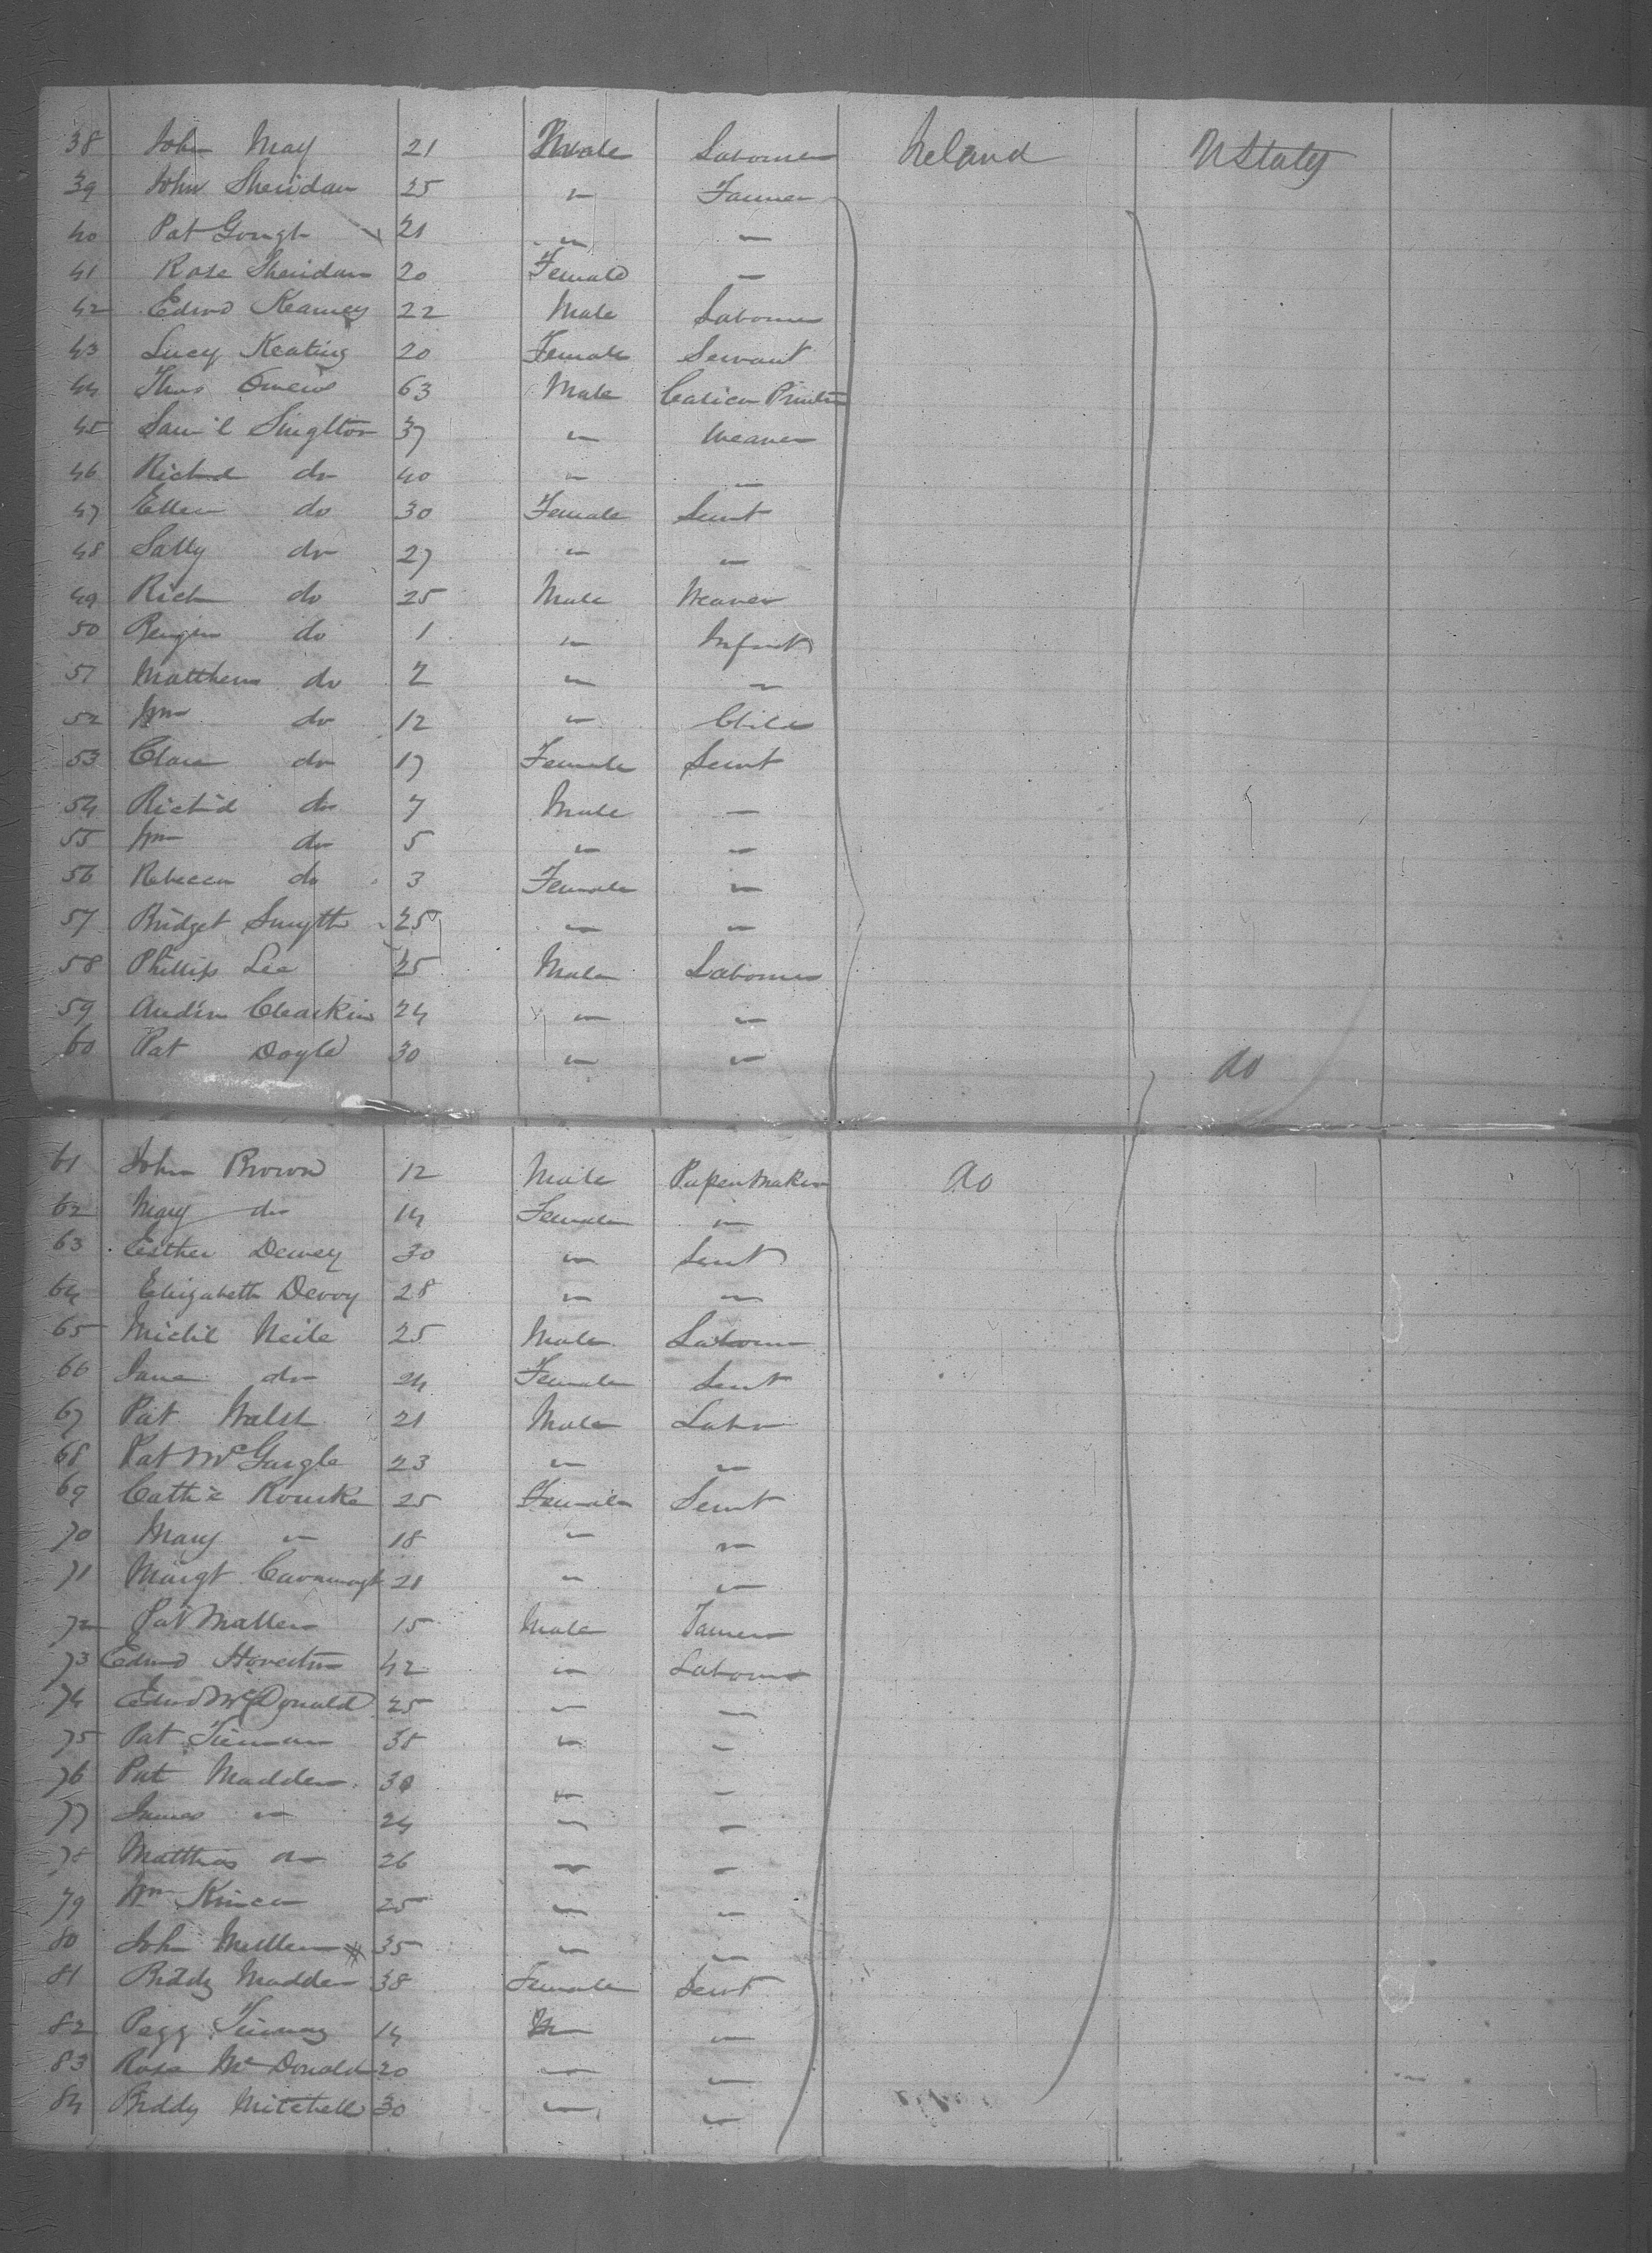 38 John May 21 Male Labourer Ireland U States
39 John Sheridan 25 " Farmer
40 Pat Gough 21 " "
41 Rose Sheridan 20 Female "
42 Edwd Kearney 22 Male Labourer
43 Lucy Keating 20 Female Servant
44 Thos 63 Male Calico Printer
45 Sam'l Singlton 37 " Weaver
46 Richd do 40 " "
47 Ellen do 30 Female Servt
48 Sally do 27 " "
49 Rich do 25 Male Weaver
50 Benjm do 1 " Infant
51 Matthew do 2 " "
52 Wm do 12 " Child
53 Clara do 17 Female Servt
54 Rich'd do 7 Male "
55 Wm do 5 " "
56 Rebecca do 3 Female "
57 Bridget Smyth 25 " "
58 Phillip Lee 25 Male Labourer
59 Andw Clearkin 24 " "
60 Pat Doyle 30 " " do
61 John Brown 12 Male Paper Maker do
62 Mary do 14 Female "
63 Esther Dewey 30 " Servt
64 Elizabeth Devoy 28 " "
65 Mich'l Neile 25 Male Labourer
66 Jane do 24 Female Servt
67 Pat Walsh 21 Male Labr
68 Pat McGurgle 23 " "
69 Cath'e Rourke 25 Female Servt
70 Mary " 18 " "
71 Margt Cavanagh 21 " "
72 Pat Mallen 15 Male Farmer
73 Edwd 42 " Labourer
74 Edwd McDonald 25 " "
75 Pat Tiernan 38 " "
76 Pat Madden 30 " "
77 James " 24 " "
78 Matthias do 26 " "
79 Wm 25 " "
80 John 35 " "
81 Biddy Madden 38 Female Servt
82 Pegg 14 " "
83 Rose McDonald 20 " "
84 Biddy Mitchell 30 " "